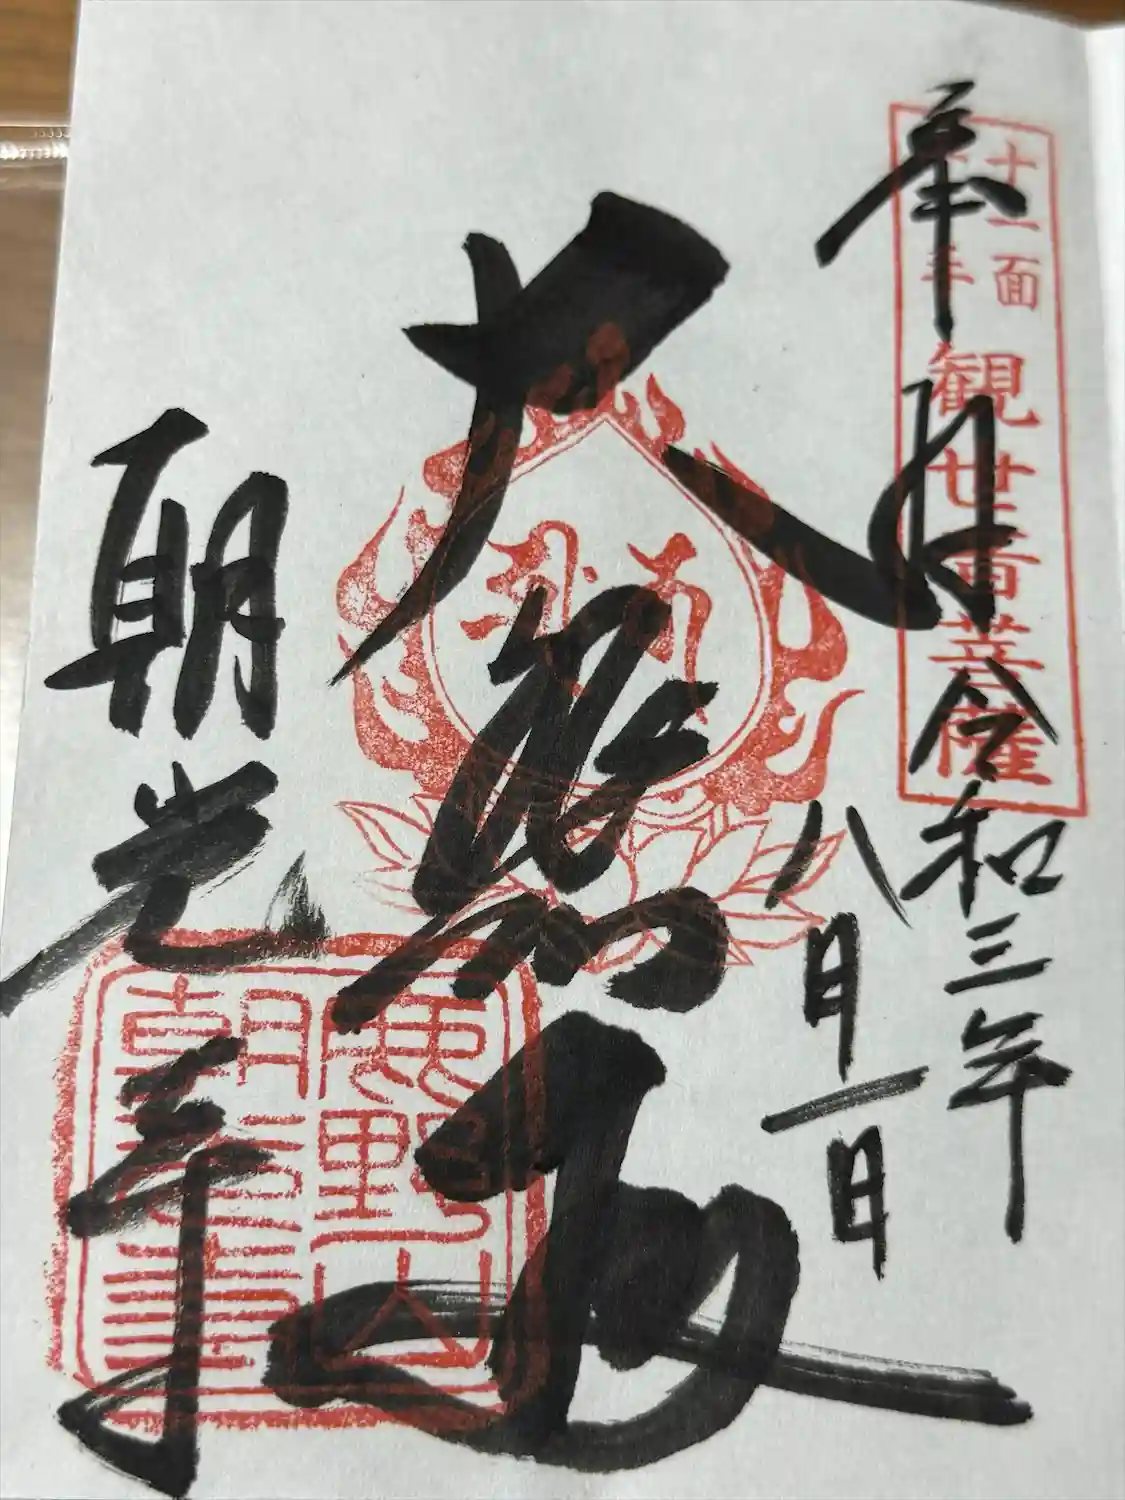 奉拝
令和三年
八月一日
十一面
千手
観世音菩薩
大悲殿
朝光寺
鹿野山